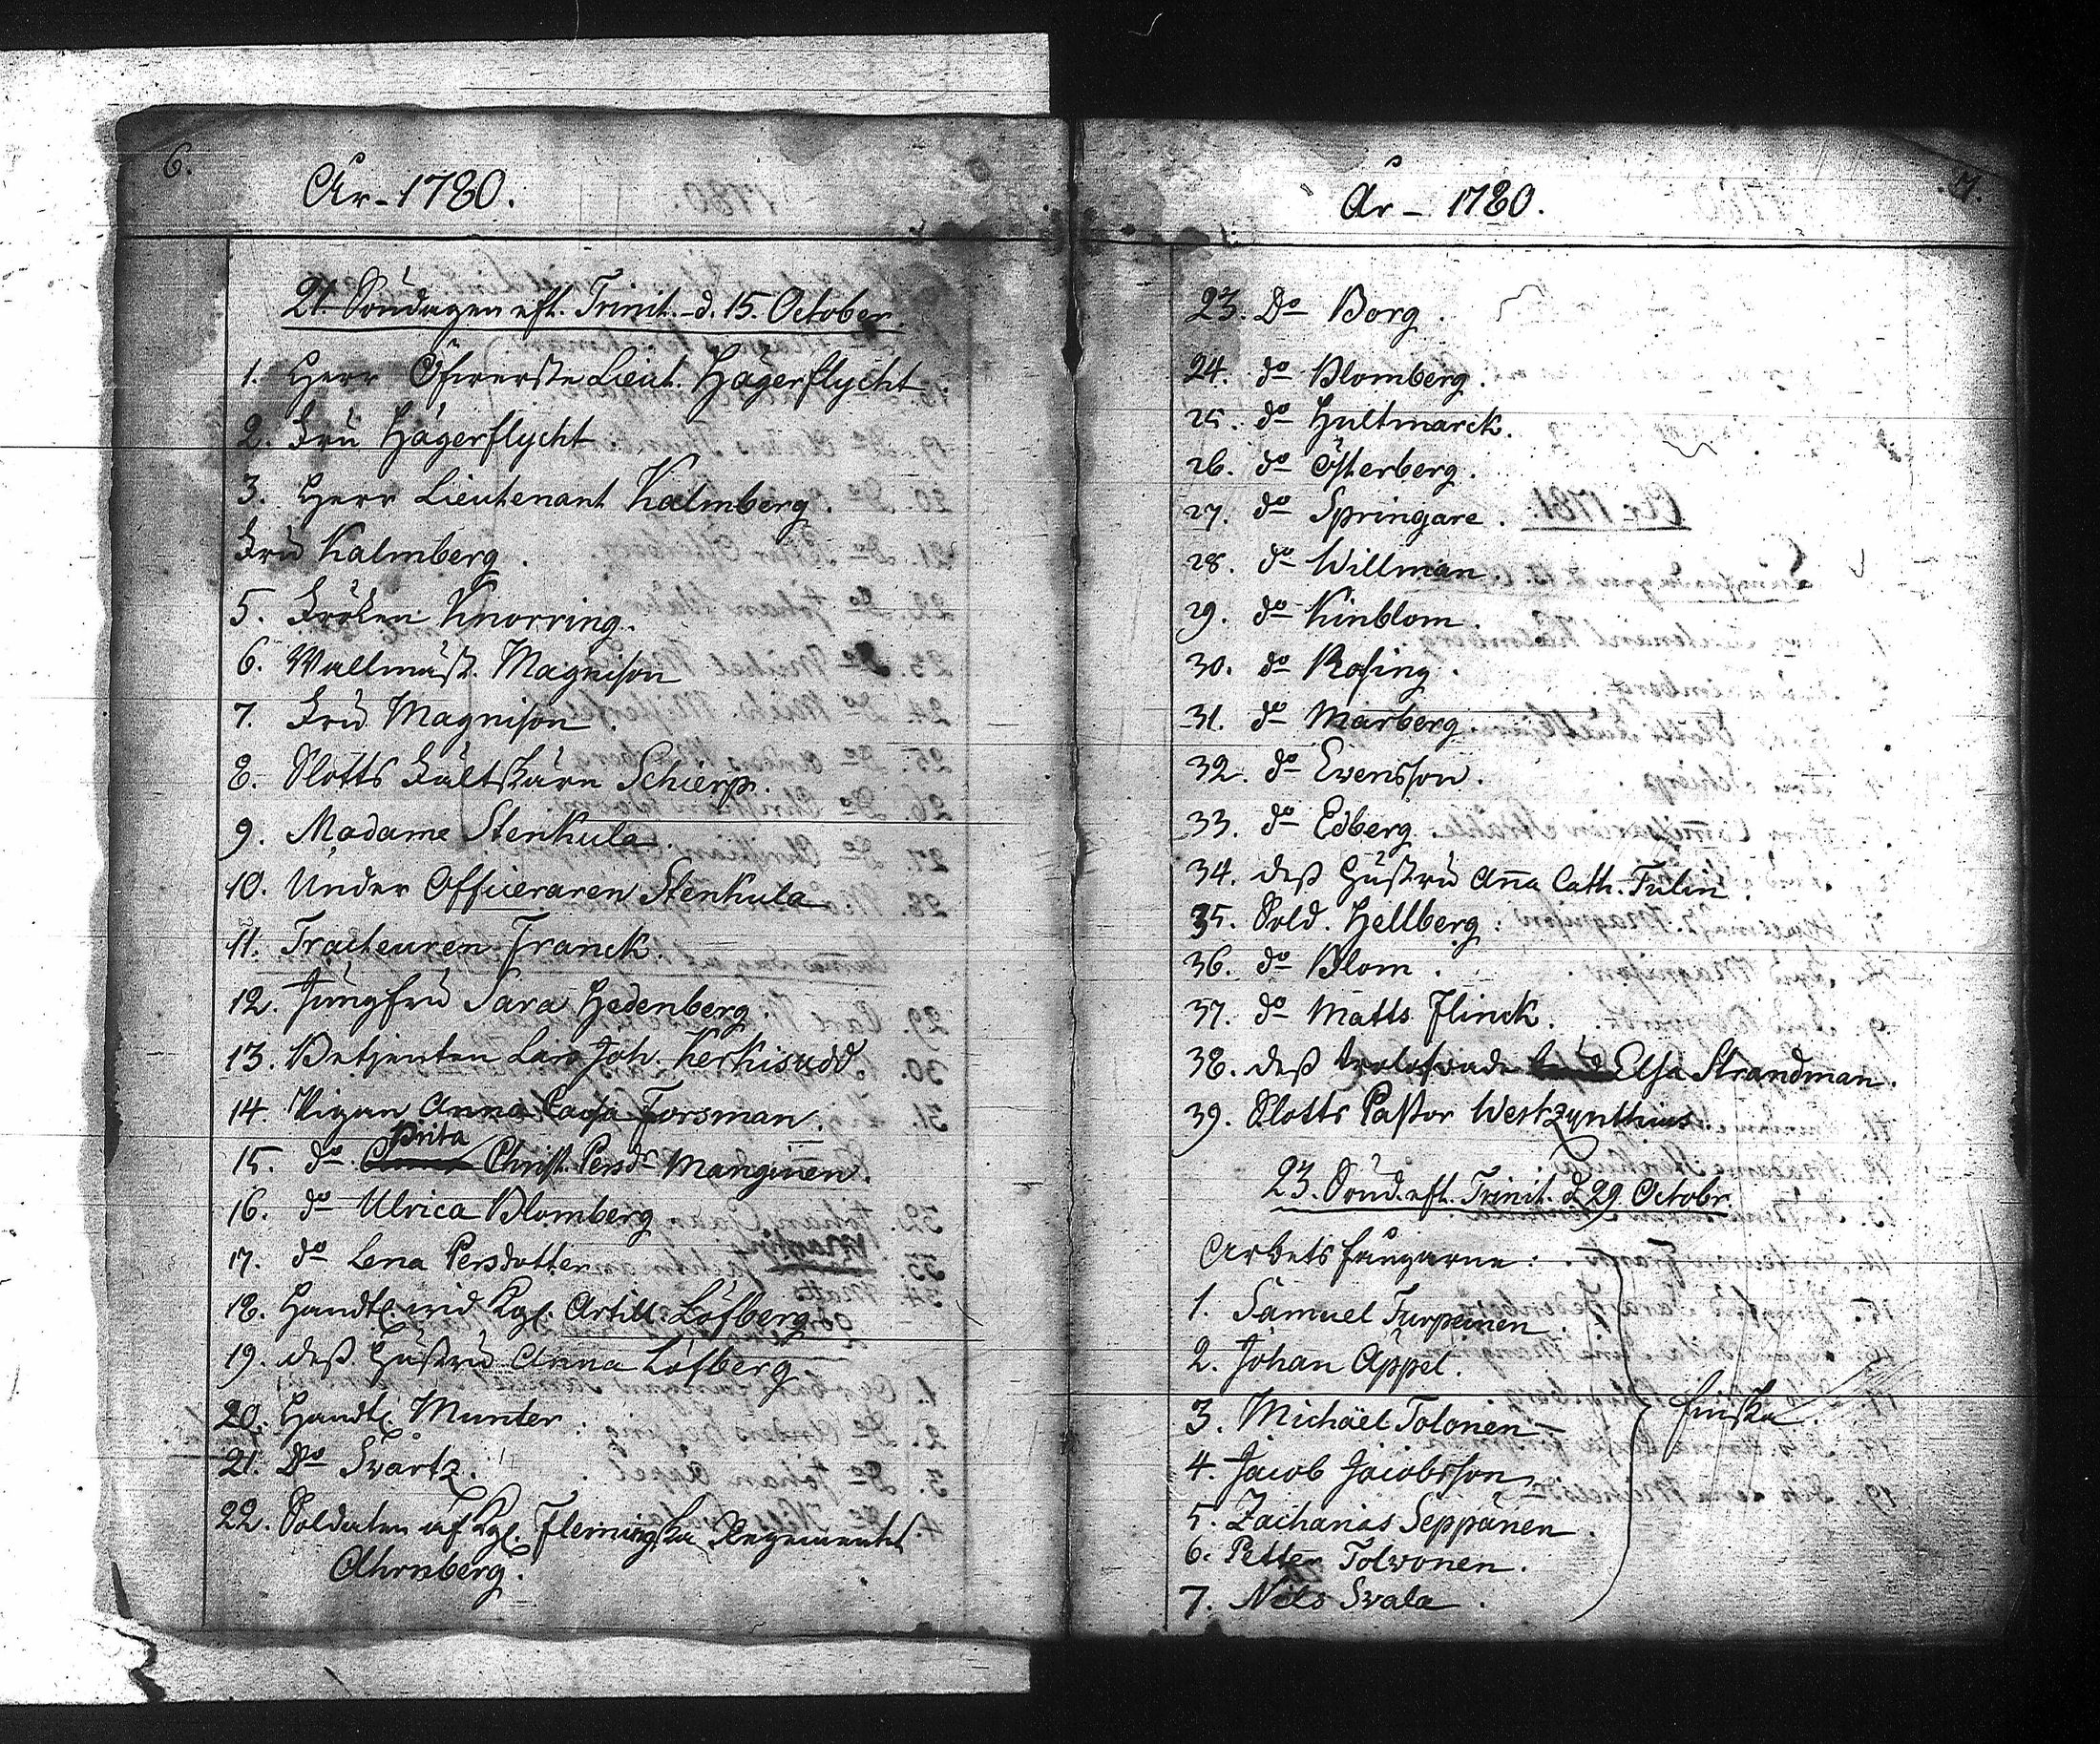 6.
År - 1780.
21. Söndagen eft. Trinit. d. 15. October.
1. Herr Öfwerste Lieut. Hägerflycht.
2. Fru Hägerflycht
3. Herr Lieutenant Kalmberg.
Fru Kalmberg.
5. Fröken Knorring.
6. Wallmäst. Magnison
7. Fru Magnison
8. Slotts Fältskärn Schierp.
9. Madame Stenkula.
10. Under Officeraren Stenkula
11. Tracteuren Franck.
12. Jungfru Sara Hedenberg.
13. Betjenten Lars Joh. Kerkisudd.
14. Pigan Anna Caisa Forsman.
Brita
15. do Christ. Persdr Manginen.
16. do Ulrica Blomberg
17. do Lena Persdotter
18. Handtl. wid Kgl. Artill. Löfberg
19. dess Hustru Anna Löfberg.
20. Handtl. Munter.
21. Do Svartz.
22. Soldaten af Kgl. Flemingska Regementet
Ahrnberg.
År - 1780.
23. Do Borg.
24. do Blomberg.
25. do Hultmarck.
26. do Österberg.
27. do Springare.
28. do Willman.
29. do Kinblom.
30. do Rosing.
31. do Marberg.
32. do Evensson.
33. do Edberg.
34. dess Hustru Anna Cath. Tulin.
35. Sold. Hellberg.
36. do Blom.
37. do Matts Flinck.
38. dess trolofwade Elsa Strandman.
39. Slotts Pastor Westzynthius
23. Sönd. eft. Trinit. d. 29. Octobr.
Arbets fångarne:
1. Samuel Turpeinen.
2. Johan Appel.
3. Michäel Tolonen
4. Jacob Jacobsson
finska.
5. Zacharias Seppänen.
6. Petter Tolvonen.
7. Nils Svala.